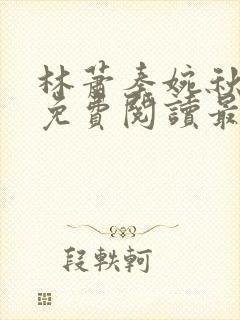 林蕭秦婉秋
免費閱讀最
段軼軻